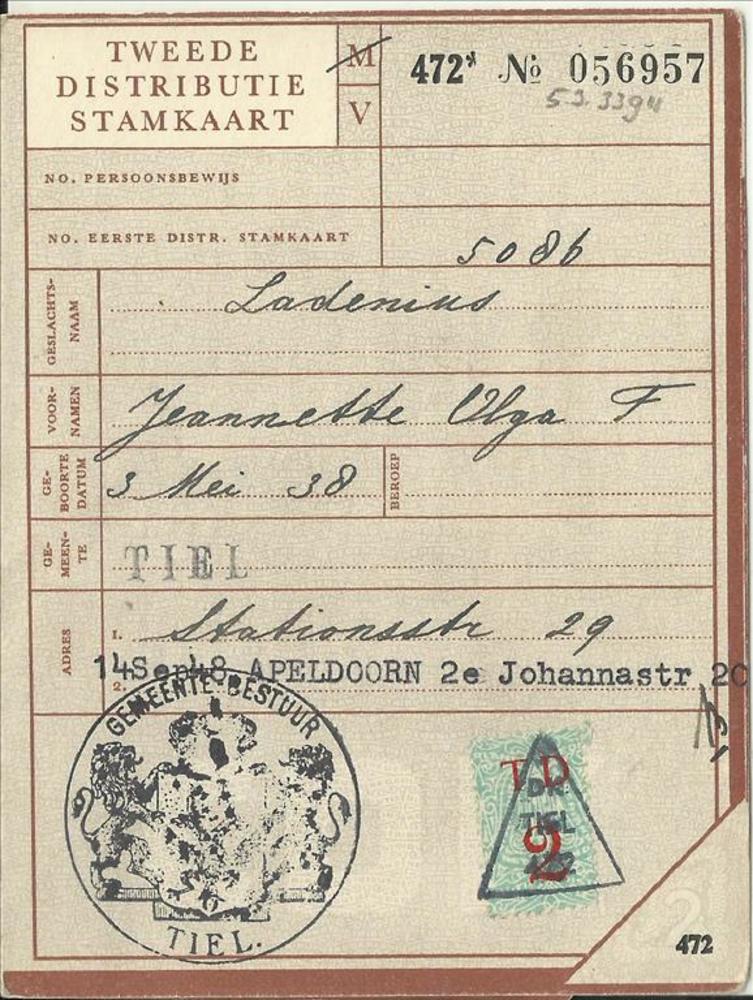 TWEEDE
DISTRIBUTIE
STAMKAART
M
V
472* № 056957
53.3394
NO. PERSOONSBEWIJS
NO. EERSTE DISTR. STAMKAART
5086
GESLACHTS-
NAAM
Ladenius
VOOR-
NAMEN
Jeannette Olga F
GE-
BOORTE
DATUM
3 Mei 38
BEROEP
GE-
MEEN-
TE
TIEL
ADRES
1. Stationsstr 29
2. 14Sep48 APELDOORN 2e Johannastr 20
GEMEENTE-BESTUUR
TIEL.
TD
DK
TIEL
2
472